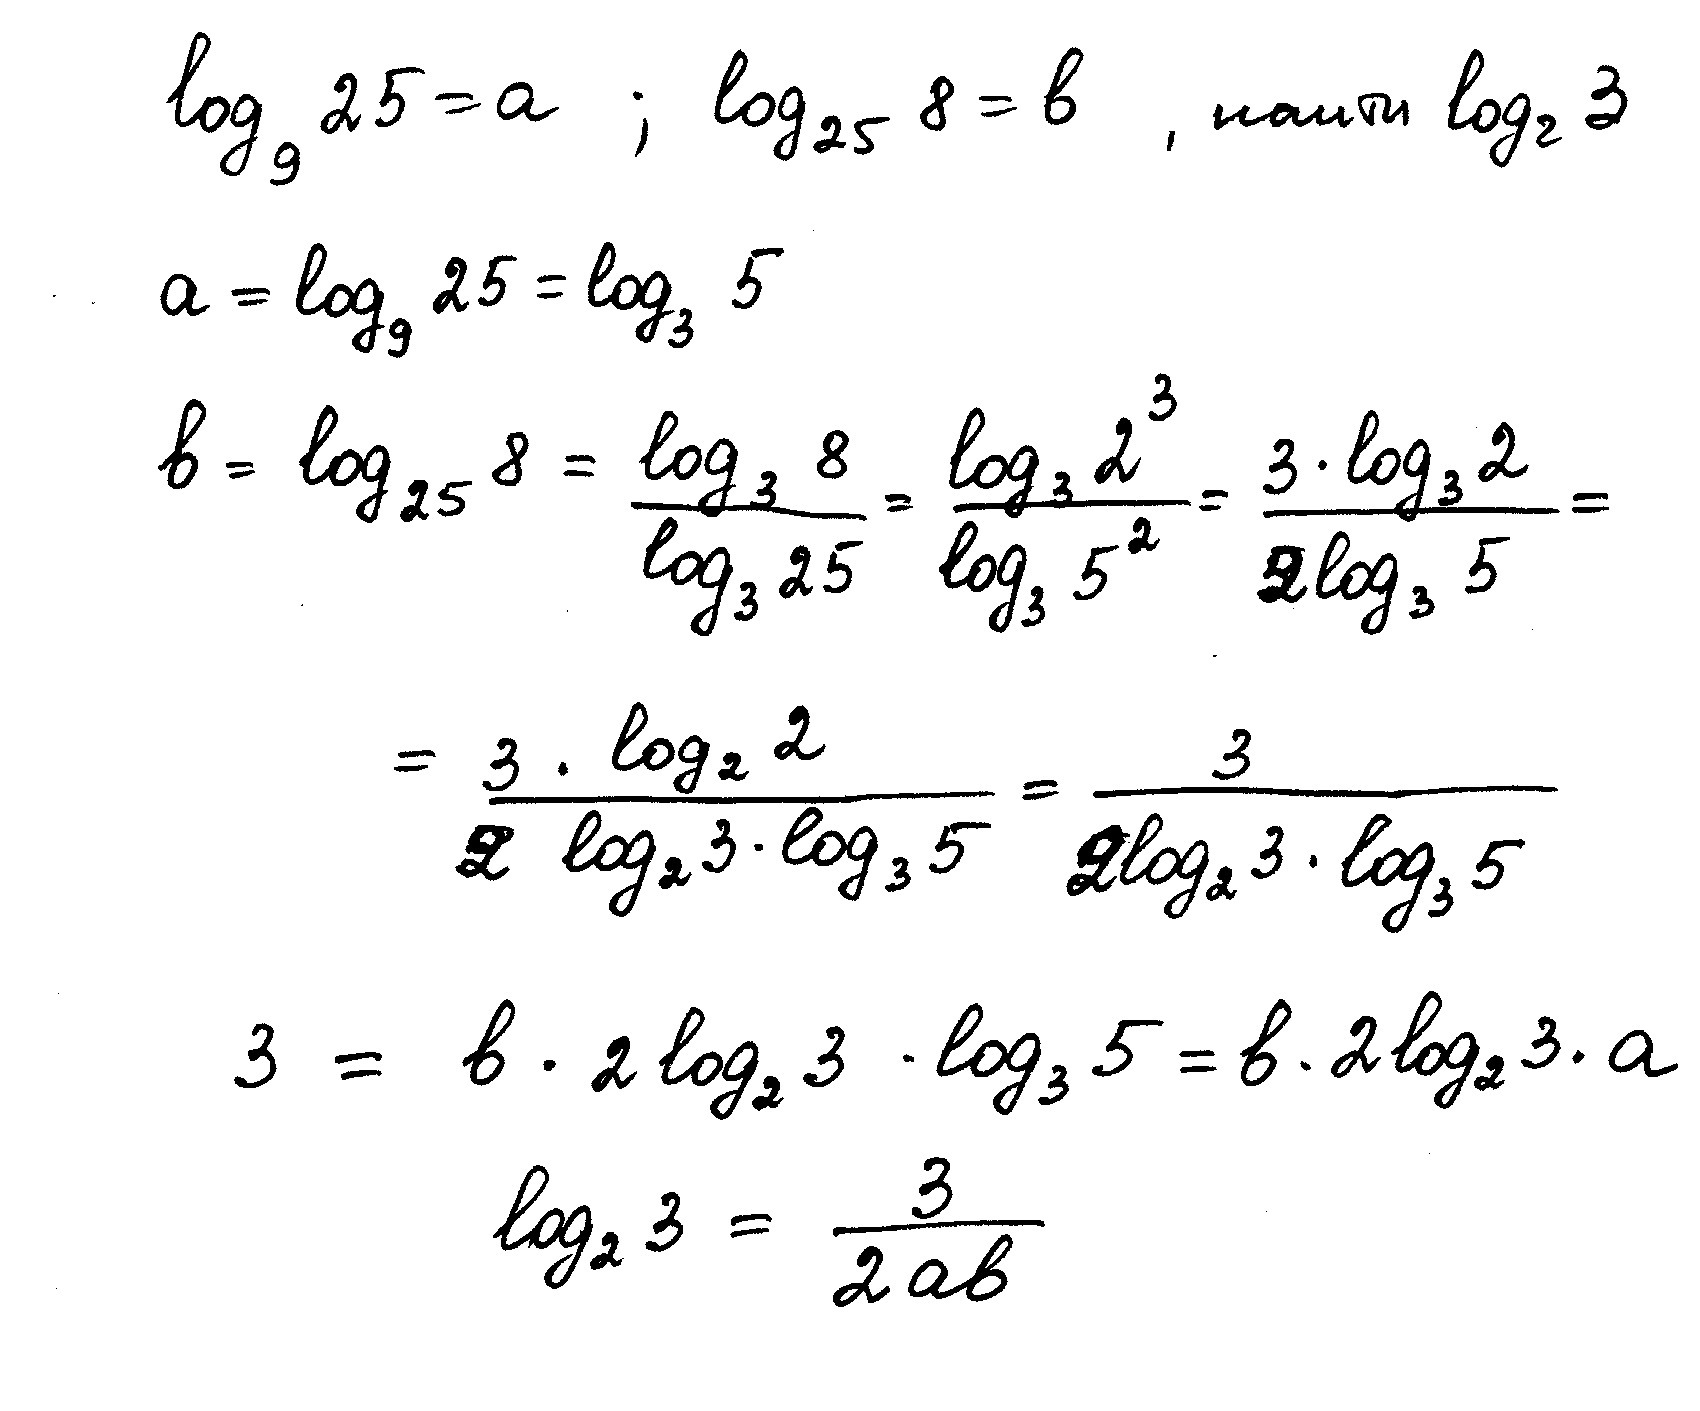 log₉ 25 = a ; log₂₅ 8 = b , найти log₂ 3
a = log₉ 25 = log₃ 5
b = log₂₅ 8 = (log₃ 8)/(log₃ 25) = (log₃ 2³)/(log₃ 5²) = (3 · log₃ 2)/(2 log₃ 5) =
= (3 · log₂ 2)/(2 log₂ 3 · log₃ 5) = 3/(2 log₂ 3 · log₃ 5)
3 = b · 2 log₂ 3 · log₃ 5 = b · 2 log₂ 3 · a
log₂ 3 = 3/(2ab)